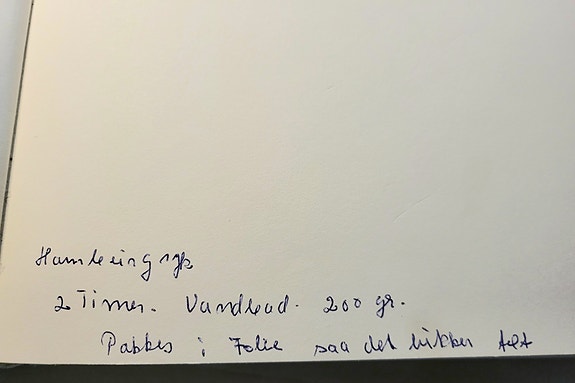 Hamburgryk
2 Timer. Vandbad. 200 gr.
Pakkes i Folie saa det lukker tæt